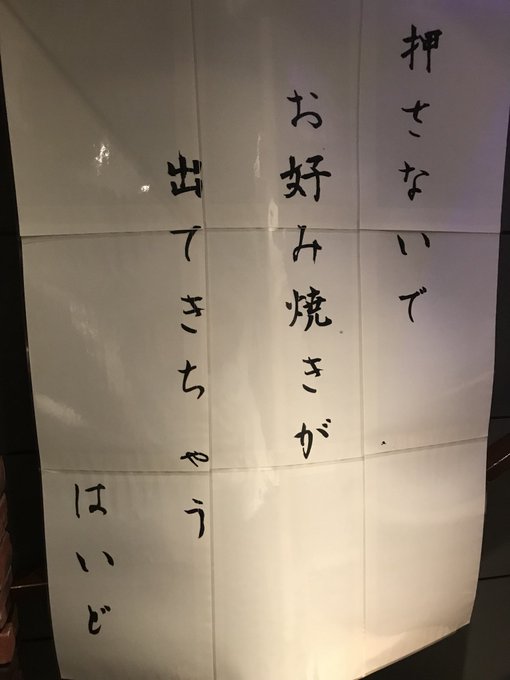 押さないで
お好み焼きが
出てきちゃう
はいど